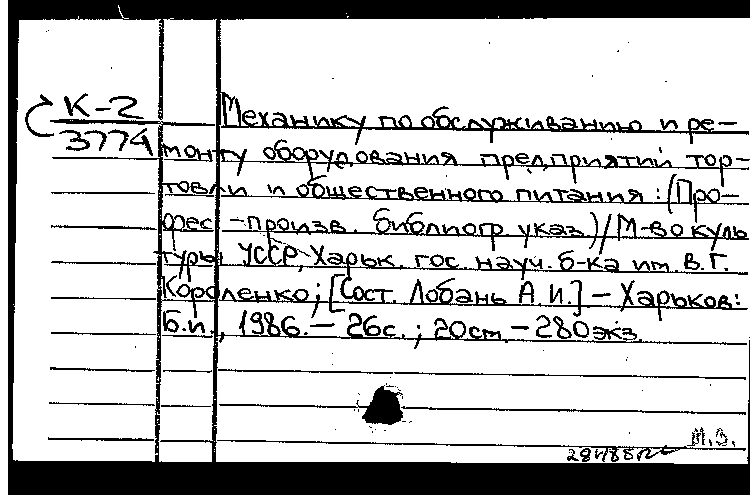 К-2
3774
Механику по обслуживанию и ре-
монту оборудования предприятий тор-
говли и общественного питания: (Про-
фес.-произв. библиогр. указ.)/М-во куль
туры УССР, Харьк. гос. науч. б-ка им. В.Г.
Короленко; [Сост. Лобань А.И.] - Харьков:
Б.и., 1986. - 26с.; 20см. - 280экз.
М.Э.